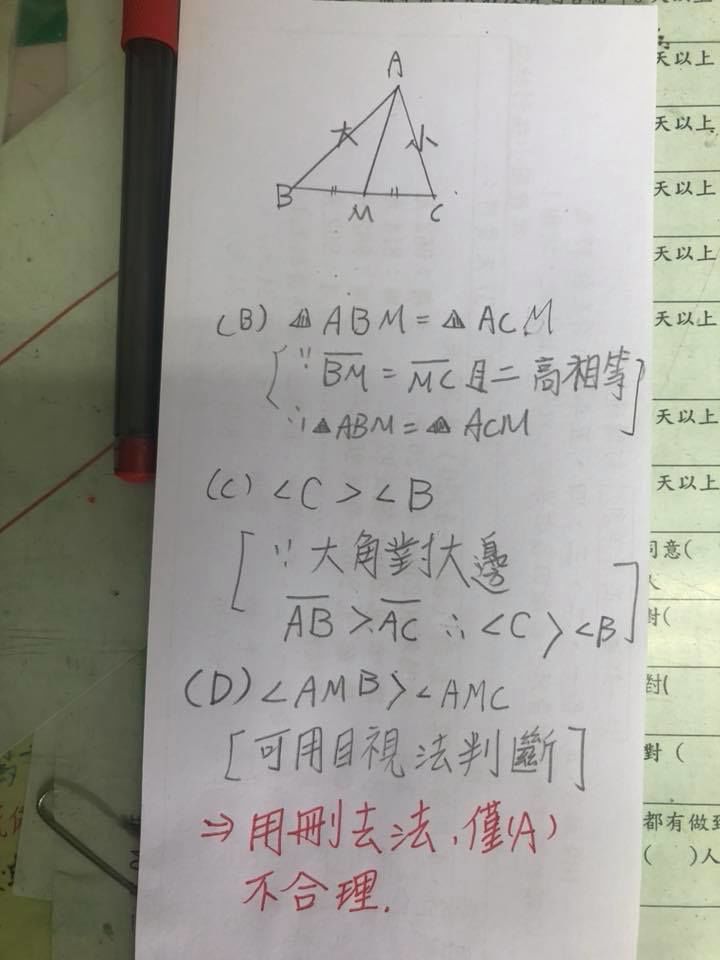 A
大 小
B M C
(B) △ABM = △ACM
[∵ BM = MC 且二高相等
∴ △ABM = △ACM]
(C) <C > <B
[∵ 大角對大邊
AB > AC ∴ <C > <B]
(D) <AMB > <AMC
[可用目視法判斷]
⇒ 用刪去法,僅(A)
不合理.
天以上
天以上
天以上
天以上
天以上
天以上
天以上
天以上
同意(
人
對(
對(
對(
都有做到
( )人